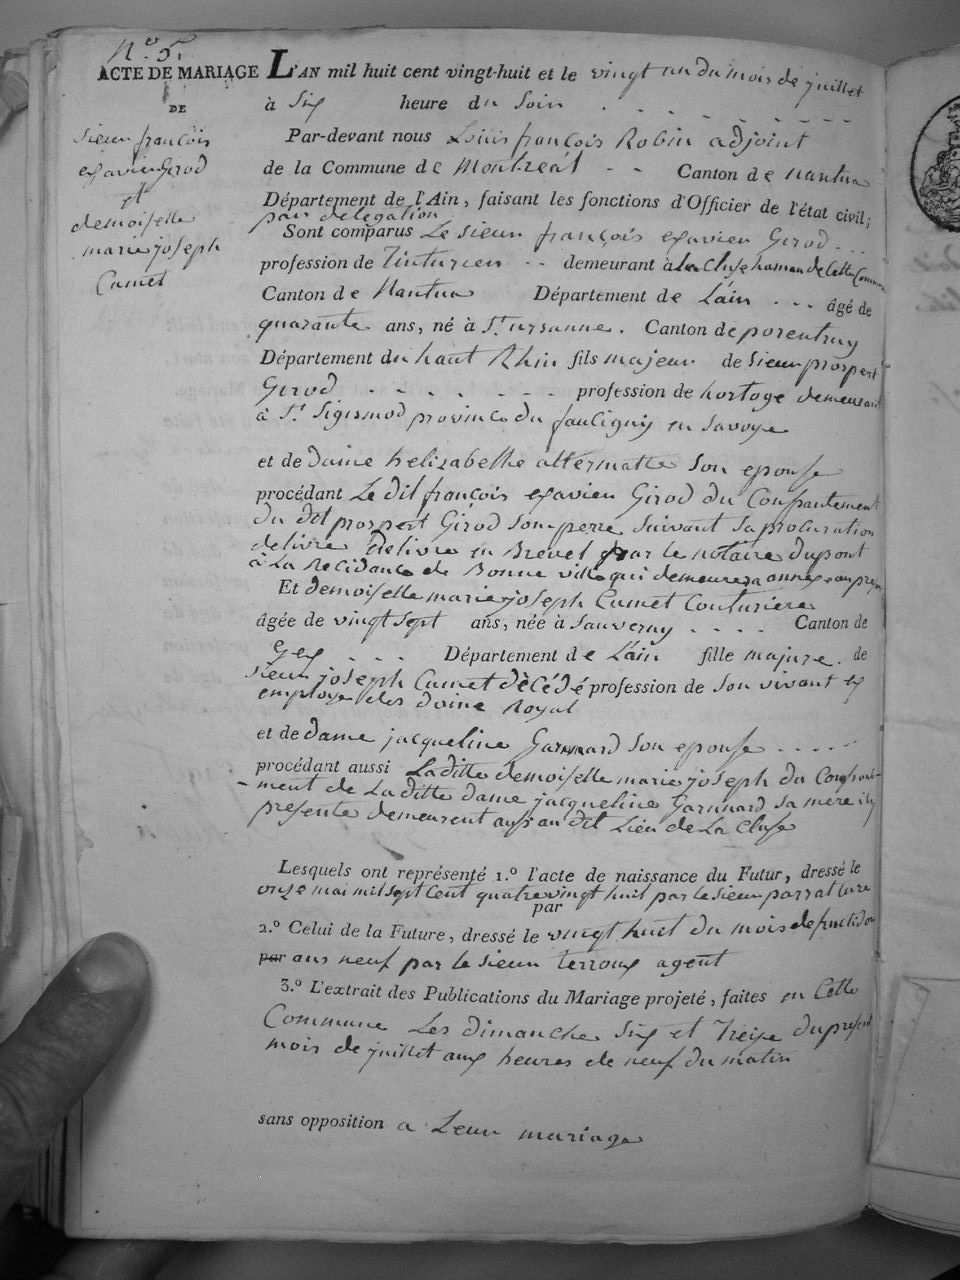 N.o 5.
ACTE DE MARIAGE
DE
Sieur françois
exavier Girod
et
demoiselle
marie joseph
Camet
L'AN mil huit cent vingt-huit et le vingt un du mois de juillet
à Six heure du Soir
Par-devant nous Louis françois Robin adjoint
de la Commune de Montreal Canton de nantua
Département de l'Ain, faisant les fonctions d'Officier de l'état civil;
par delegation
Sont comparus Le sieur françois exavier Girod
profession de Tinturier demeurant à La Cluse hamau de Cette Commune
Canton de Nantua Département de L'ain âgé de
quarante ans, né à St. ursanne. Canton de porentruy
Département du haut Rhin fils majeur de Sieur prospert
Girod profession de horloge demeurant
à St. Sigismod province du fauligny en Savoye
et de Dame helizabethe altermatte Son epouse
procédant Le dit françois exavier Girod du Consantement
du dit prospert Girod Son perre Suivant Sa procuration
delivre delivre en Brevet par le notaire dupont
à La Recidance de Bonne ville qui demeurera annexe au
Et demoiselle marie joseph Camet Couturiere
âgée de vingt sept ans, née à Sauverny Canton de
Gex Département de L'ain fille majure de
Sieur joseph Camet dècédé profession de Son vivant ex
employe des doine Royal
et de dame jacqueline Garnnard Son epouse
procédant aussi Laditte demoiselle marie joseph du Consente-
-ment de Laditte dame jacqueline Garnnard Sa mere icy
presente demeurent aussi au dit Lieu de La Cluse
Lesquels ont représenté 1.o l'acte de naissance du Futur, dressé le
onse mai mil sept Cent quatre vingt huit par le Sieur
par
2.o Celui de la Future, dressé le vingt huit du mois de fructidor
par ans neuf par le Sieur terroux agent
3.o L'extrait des Publications du Mariage projeté, faites en Cette
Commune Les dimanche Six et Treise du present
mois de juillet aux heures de neuf du matin
sans opposition a Leur mariage